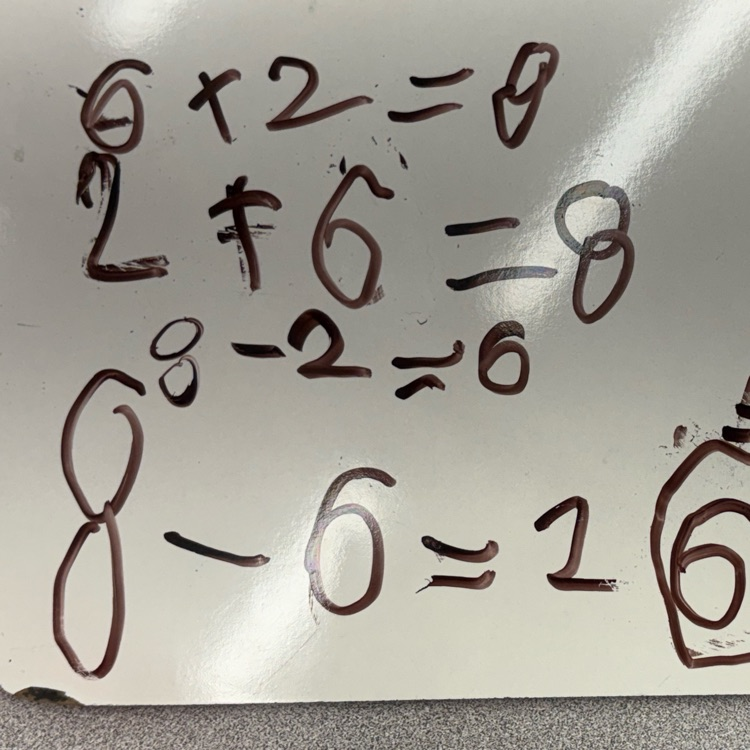 6 + 2 = 8
2 + 6 = 8
8 - 2 = 6
8 - 6 = 2 6